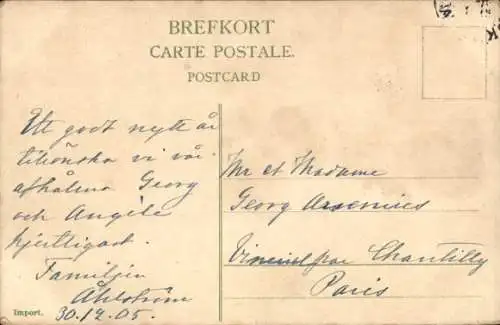 BREFKORT
CARTE POSTALE.
POSTCARD
Ett godt nytt år
tillönska vi våi
afhålna Georg
och Angéle
hjertligast.
Familjen
Åhlström
30.12.05.
Mr et Madame
Georg
par Chantilly
Paris
Import.